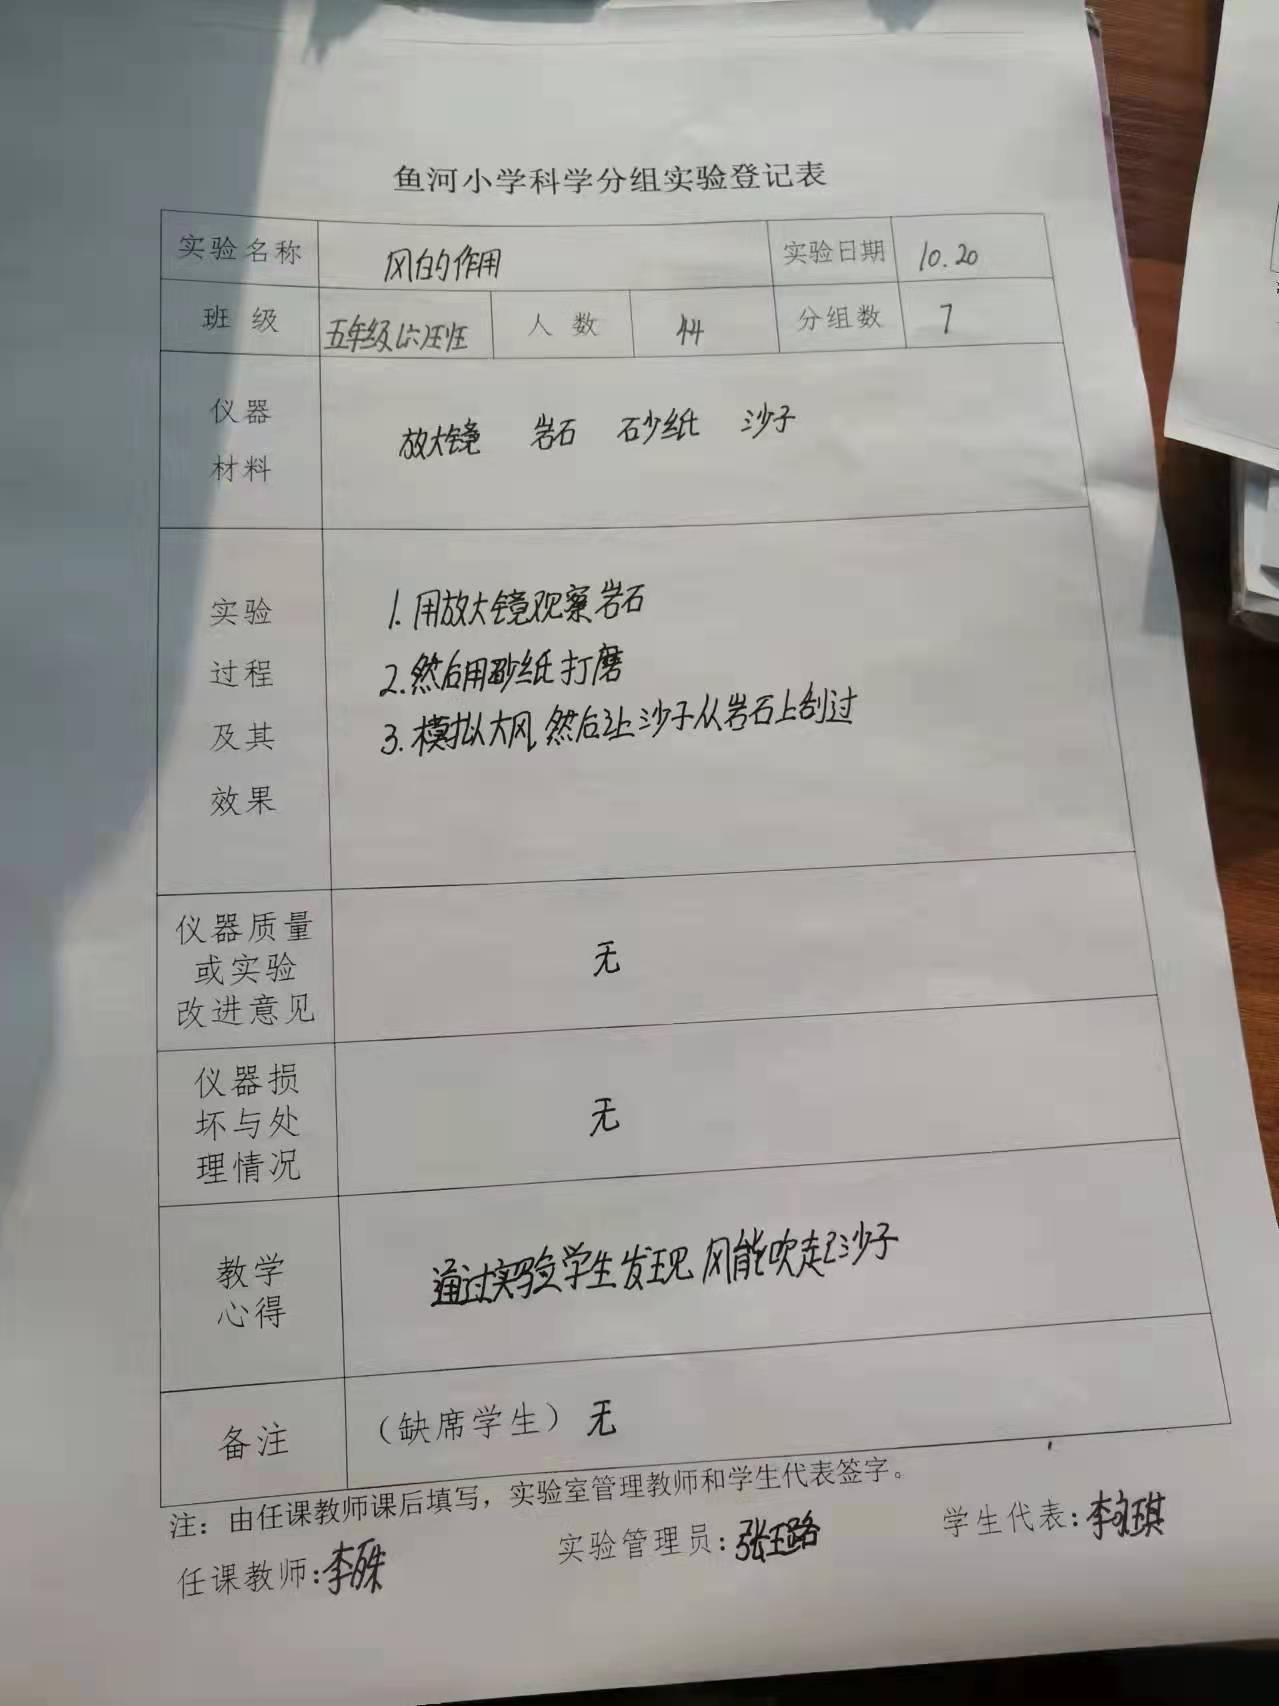 鱼河小学科学分组实验登记表
实验名称 风的作用 实验日期 10.20
班 级 五年级六班 人 数 44 分组数 7
仪器
材料
放大镜 岩石 砂纸 沙子
实验
过程
及其
效果
1.用放大镜观察岩石
2.然后用砂纸打磨
3.模拟大风,然后让沙子从岩石上刮过
仪器质量
或实验
改进意见
无
仪器损
坏与处
理情况
无
教学
心得
通过实验学生发现 风能吹起沙子
备注 (缺席学生) 无
注：由任课教师课后填写，实验室管理教师和学生代表签字。
任课教师:李 实验管理员:张 路 学生代表:李 琪